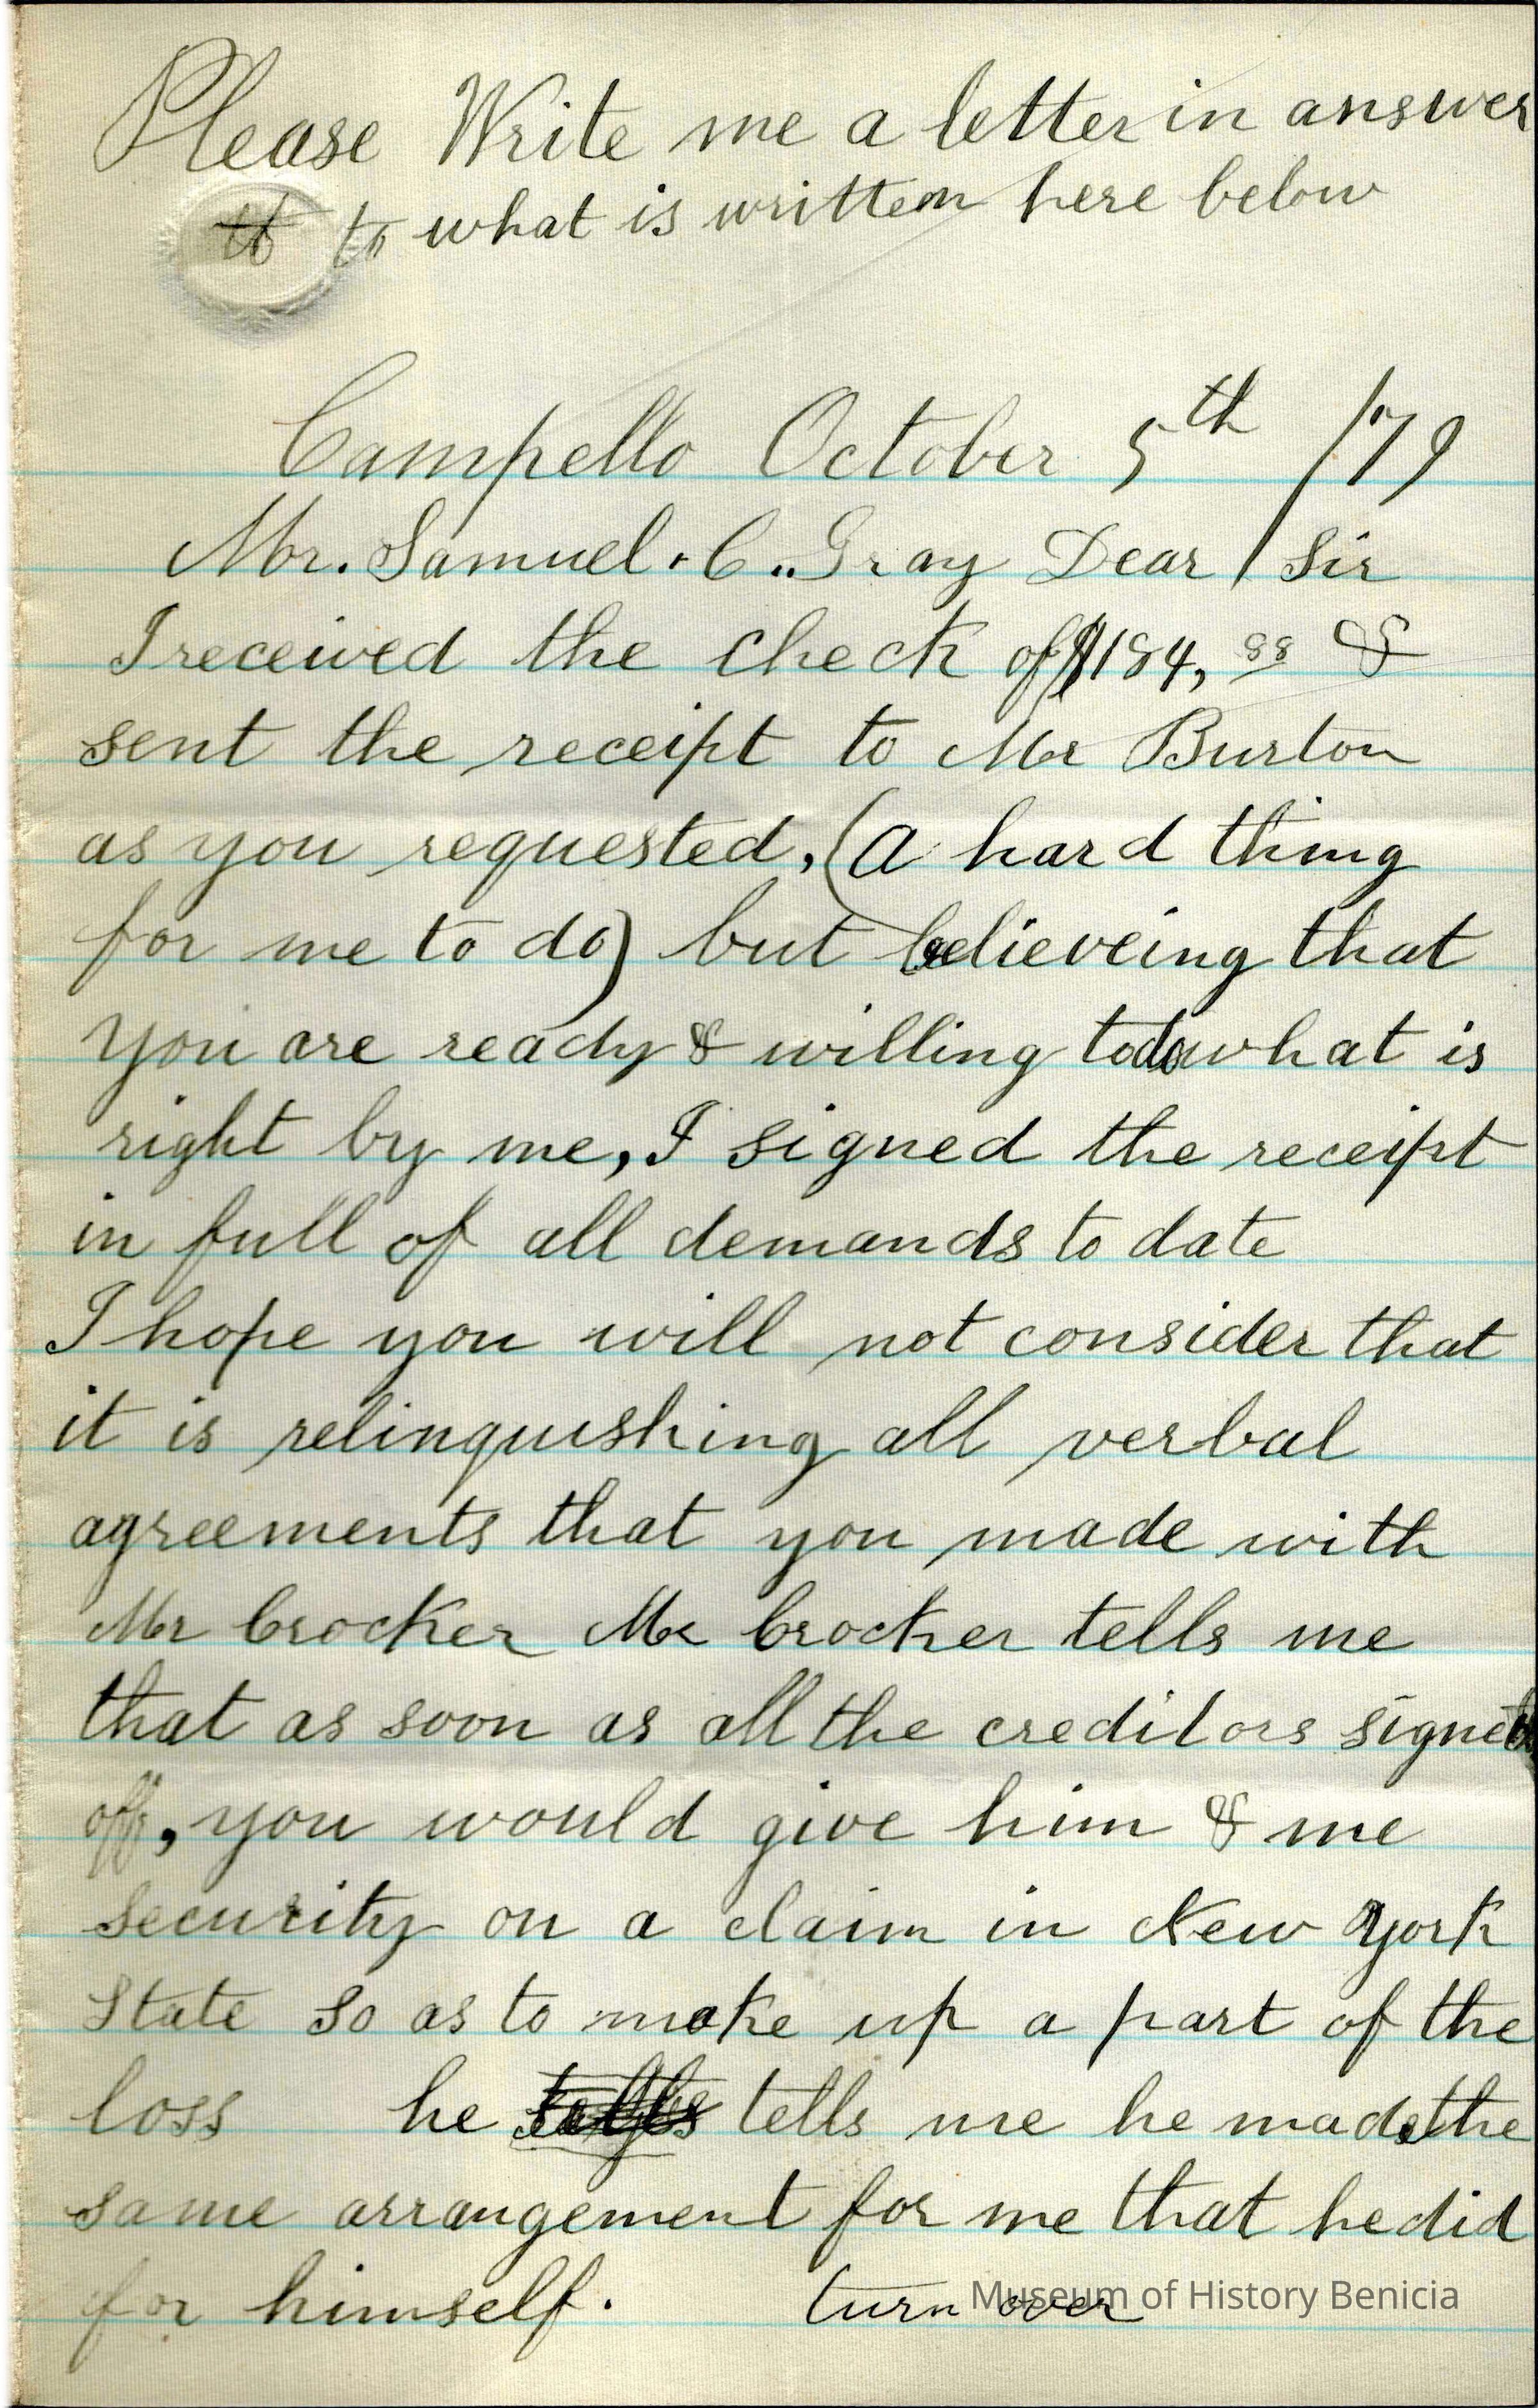 Please Write me a letter in answer
to to what is written here below
Campello October 5th /79
Mr. Samuel. C.. Gray Dear / Sir
I received the check of $184, 88 &
sent the receipt to Mr Burton
as you requested, (a hard thing
for me to do) but believeing that
you are ready & willing to do what is
right by me, I signed the receipt
in full of all demands to date
I hope you will not consider that
it is relinquishing all verbal
agreements that you made with
Mr Crocker Mr Crocker tells me
that as soon as all the creditors signed
off, you would give him & me
security on a claim in New York
State so as to make up a part of the
loss he tells me he made the
same arrangement for me that he did
for himself. turn over
Museum of History Benicia